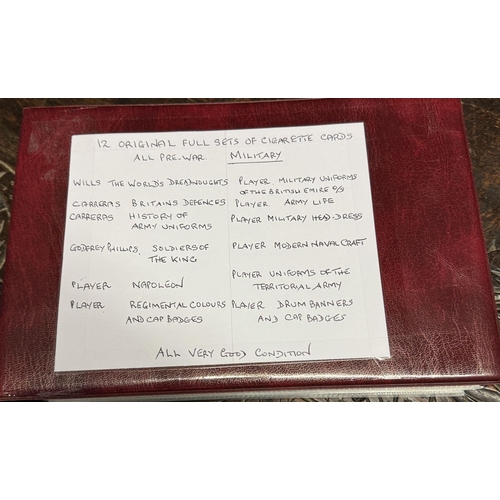 12 ORIGINAL FULL SETS OF CIGARETTE CARDS
ALL PRE-WAR. MILITARY
WILLS THE WORLD'S DREADNOUGHTS
CARRERAS BRITAINS DEFENCES
CARRERAS HISTORY OF
ARMY UNIFORMS
GODFREY PHILLIPS, SOLDIERS OF
THE KING
PLAYER NAPOLEON
PLAYER REGIMENTAL COLOURS
AND CAP BADGES
PLAYER MILITARY UNIFORMS
OF THE BRITISH EMIRE O/S
PLAYER ARMY LIFE
PLAYER MILITARY HEAD-DRESS
PLAYER MODERN NAVAL CRAFT
PLAYER UNIFORMS OF THE
TERRITORIAL ARMY
PLAYER DRUM BANNERS
AND CAP BADGES
ALL VERY GOOD CONDITION